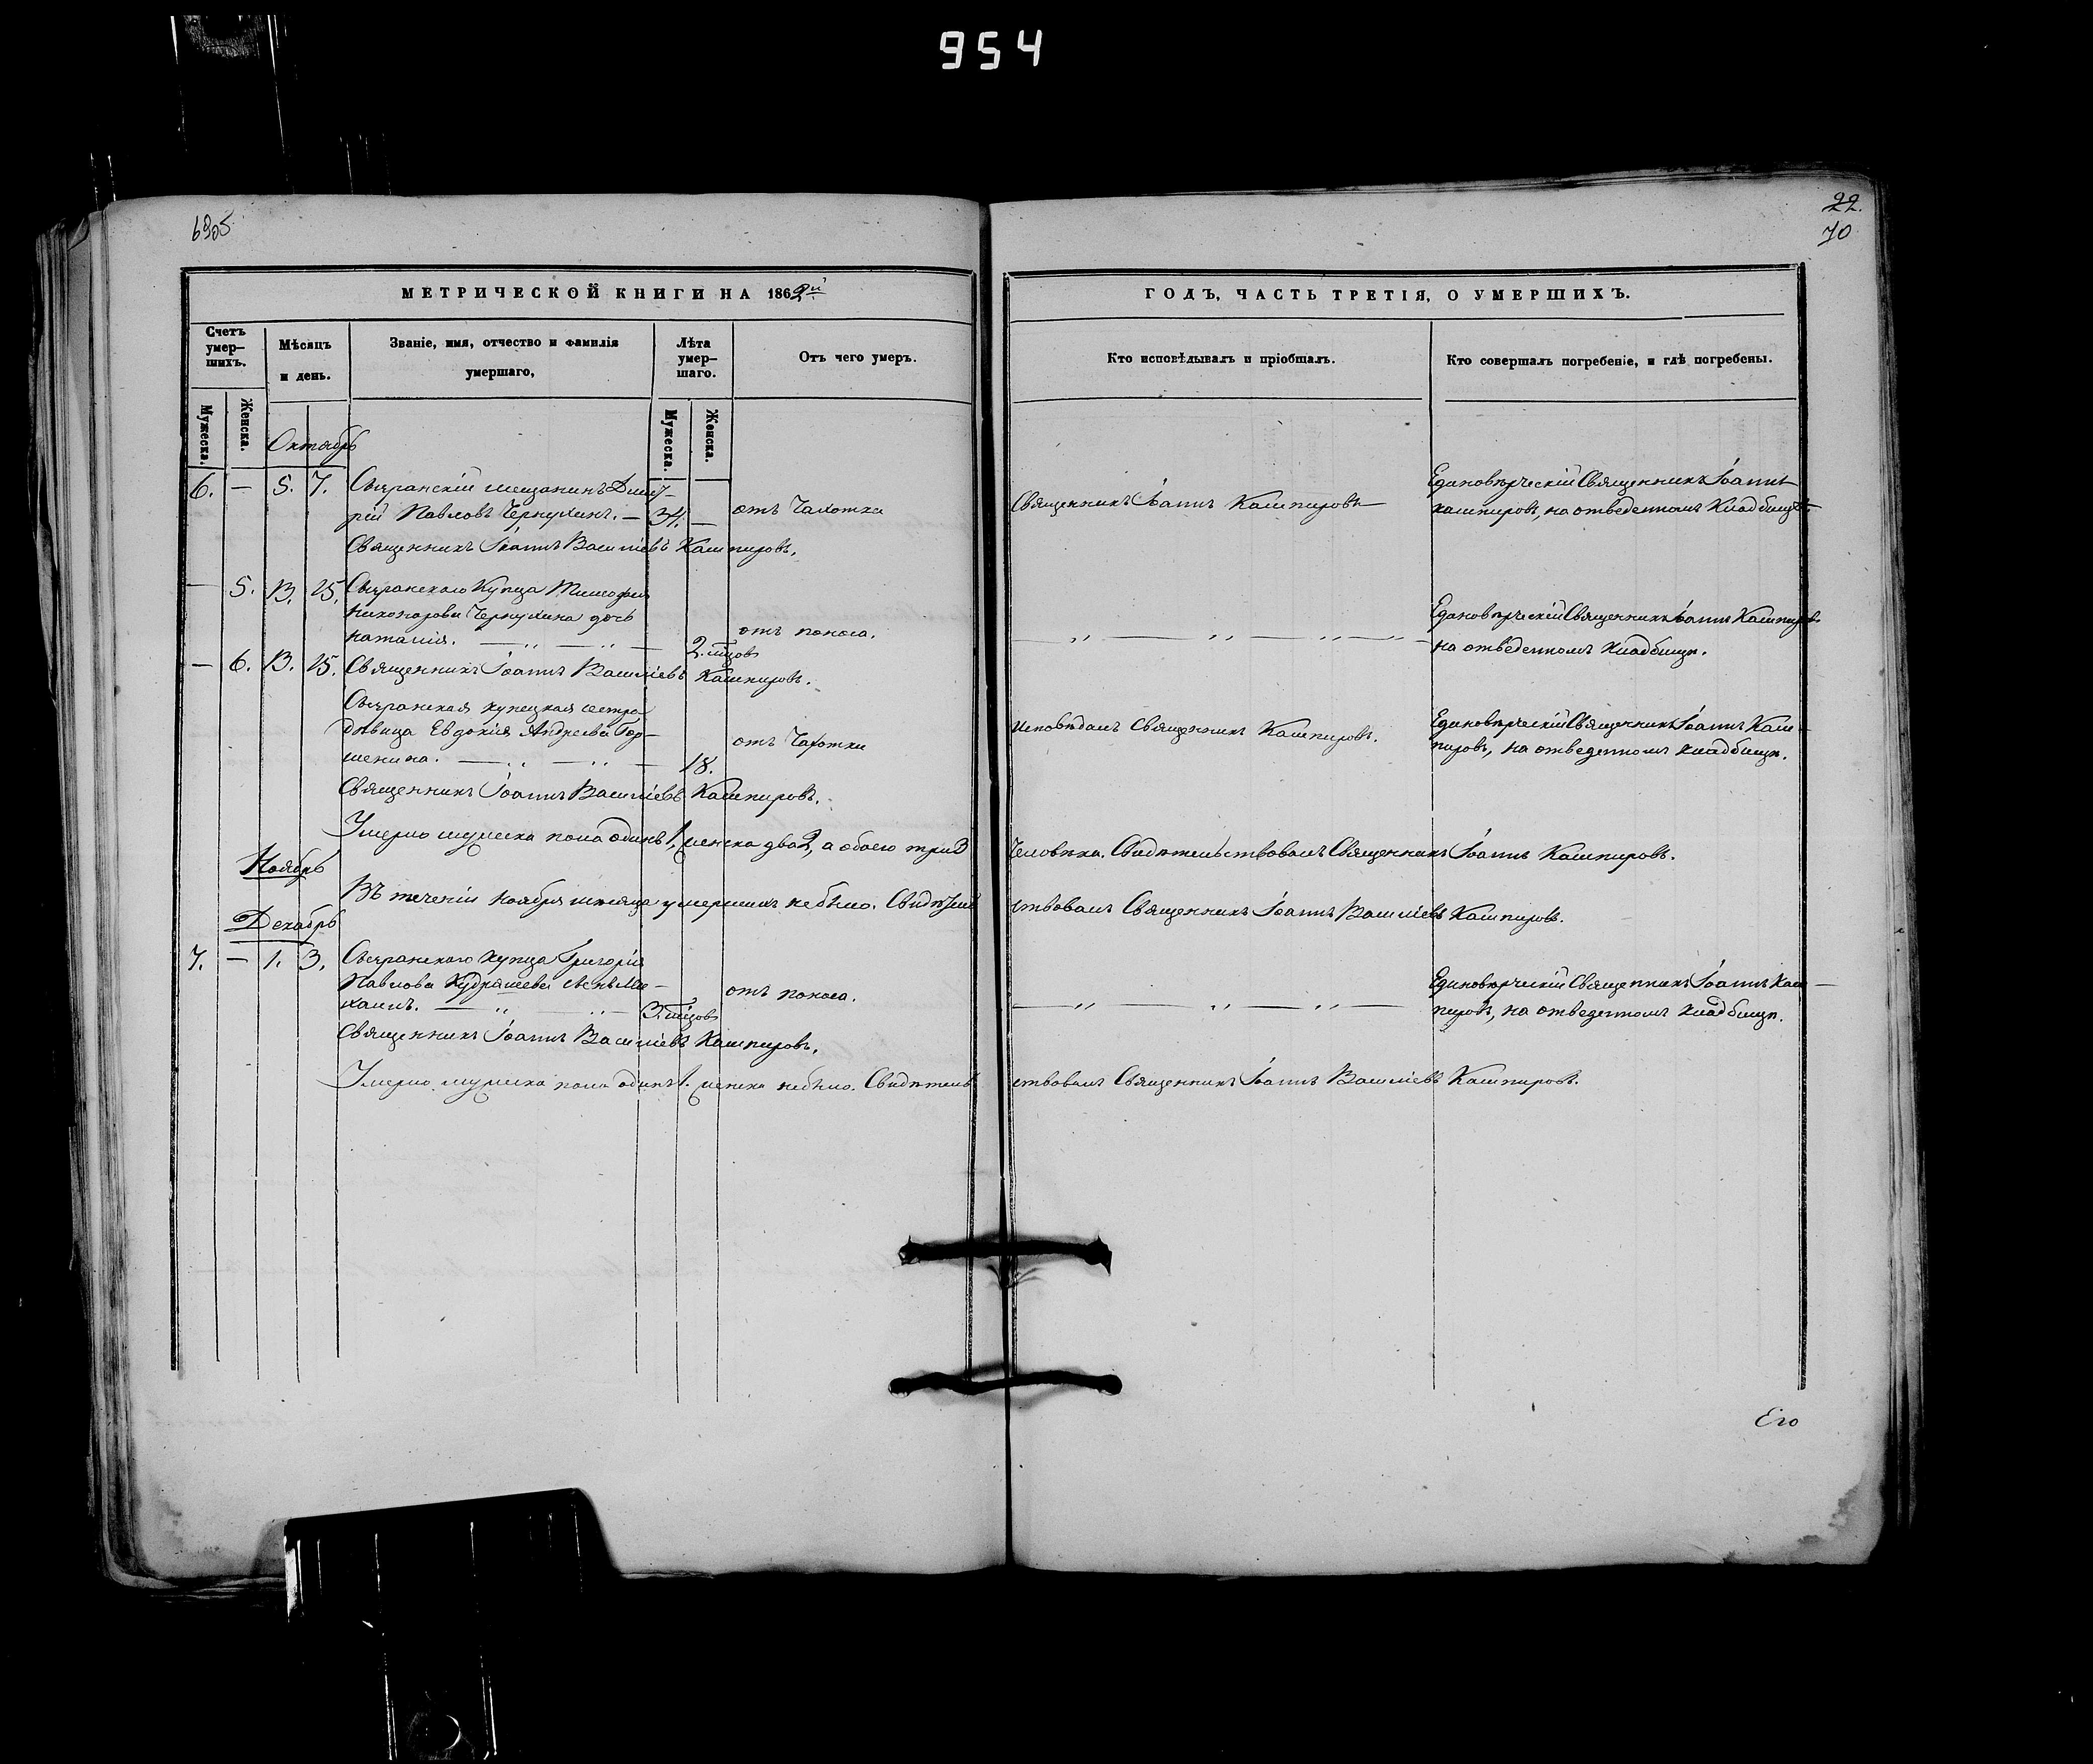 954
6905
22.
70
МЕТРИЧЕСКОЙ КНИГИ НА 1862й
ГОДЪ, ЧАСТЬ ТРЕТІЯ, О УМЕРШИХЪ.
Счетъ умер–шихъ.
Мужеска.
Женска.
Мѣсяцъ и день.
Званіе, имя, отчество и фамилія умершаго,
Лѣта умер–шаго.
Мужеска.
Женска.
Отъ чего умеръ.
Кто исповѣдывалъ и пріобщалъ.
Кто совершалъ погребеніе, и гдѣ погребены.
Октябрь
6. — 5. 7. Сызранскій мещанинъ Дмит–
рій Павловъ Чернухинъ. — 34. — отъ Чахотки
Священникъ Іоаннъ Кашпировъ
Единовѣрческій Священникъ Іоаннъ
Кашпировъ, на отведенномъ Кладбищѣ
Священникъ Іоаннъ Васильевъ Кашпировъ.
— 5. 13. 15. Сызранскаго Купца Тимофея
Никонорова Чернухина дочь
Наталія. 2. мѣсцовъ отъ поноса.
Единовѣрческій Священникъ Іоаннъ Кашпировъ
на отведенномъ Кладбищѣ.
— 6. 13. 15. Священникъ Іоаннъ Васильевъ Кашпировъ.
Сызранская купецкая сестра
дѣвица Евдокія Андреева Гор–
шенина. 18. отъ Чахотки
Исповѣдалъ Священникъ Кашпировъ.
Единовѣрческій Священникъ Іоаннъ Каш–
пировъ, на отведенномъ кладбищѣ.
Священникъ Іоаннъ Васильевъ Кашпировъ.
Умерло мужеска пола одинъ 1, женска два 2, а обоего три 3 Человѣка. Свидѣтельствовалъ Священникъ Іоаннъ Кашпировъ.
Ноябрь
Въ теченіи Ноября мѣсяца умершихъ небыло. Свидѣтельствовалъ Священникъ Іоаннъ Васильевъ Кашпировъ.
Декабрь
7. — 1. 3. Сызранскаго Купца Григорія
Павлова Кудряшева сынъ Ми–
хаилъ. 3. мѣсцовъ отъ поноса.
Единовѣрческій Священникъ Іоаннъ Каш–
пировъ, на отведенномъ кладбищѣ.
Священникъ Іоаннъ Васильевъ Кашпировъ.
Умерло мужеска пола одинъ 1. женска небыло. Свидѣтельствовалъ Священникъ Іоаннъ Васильевъ Кашпировъ.
Его